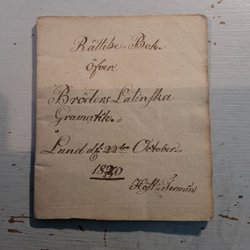 Rättelse-Bok.
öfver
Bröders Latinska
Gramatik.
Lund d. 22dra October
1820
Höst-Termin